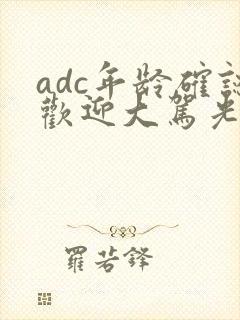 adc年龄確認
歡迎大駕光
羅若鋒